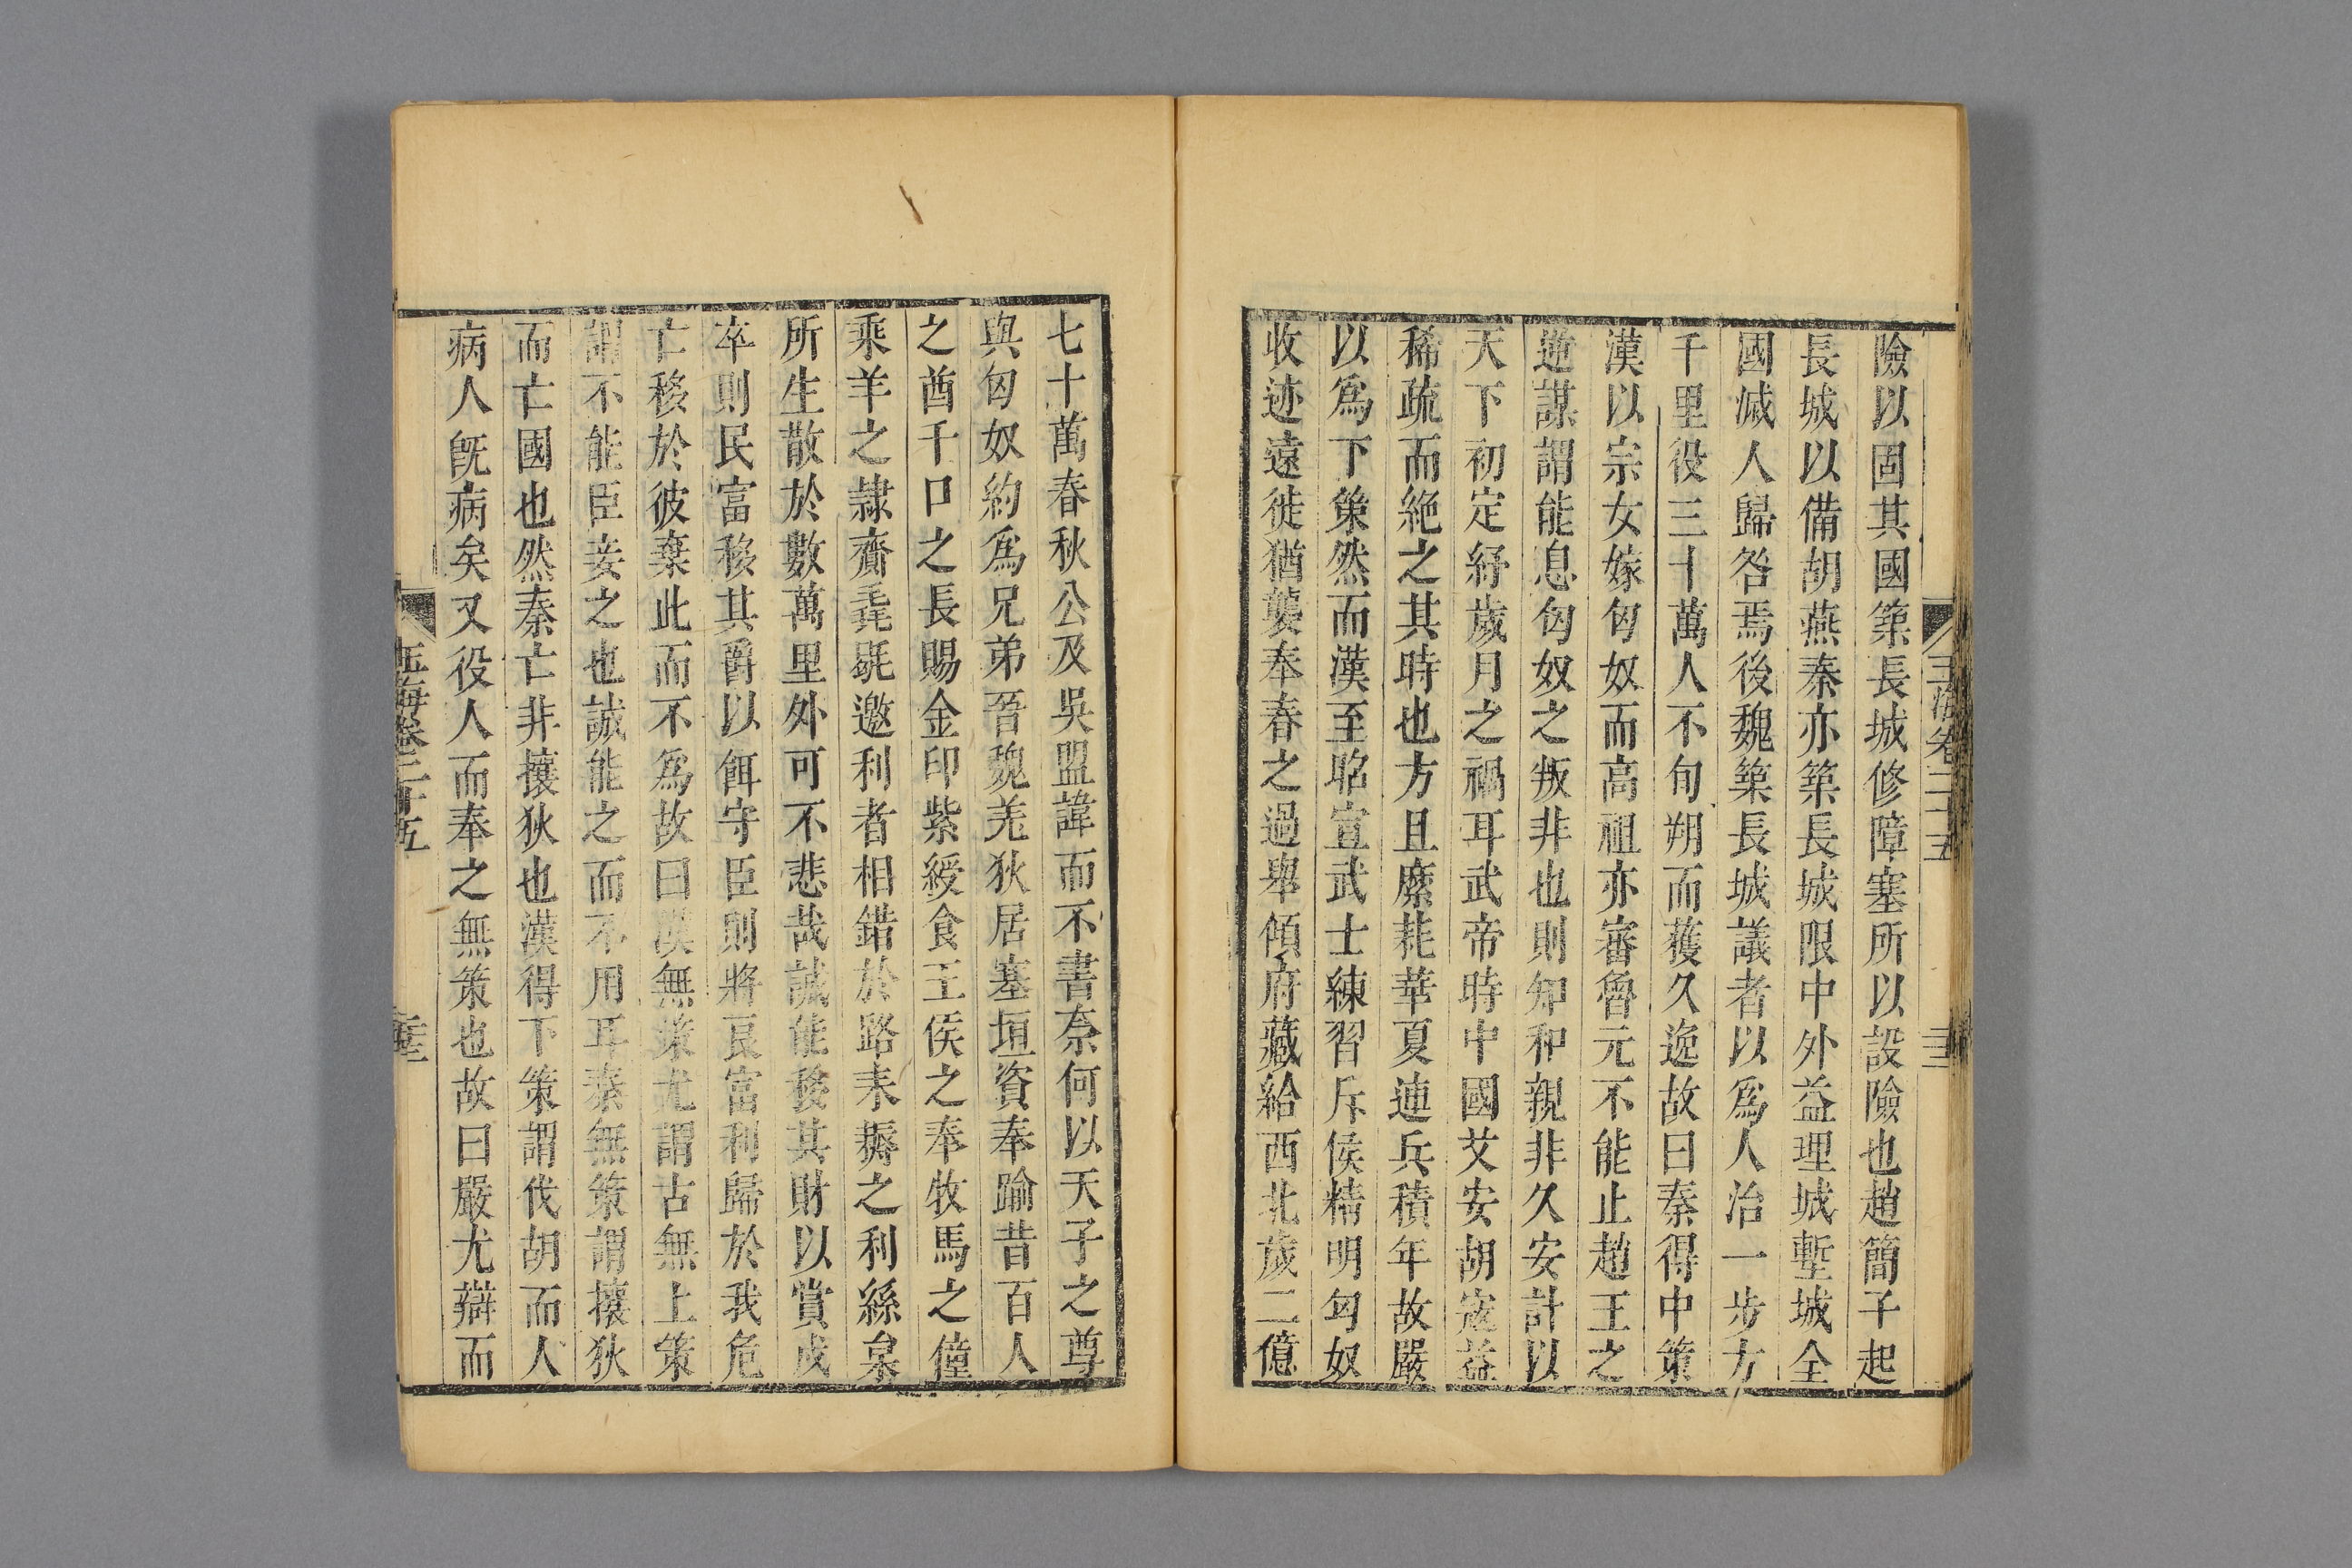 險以固其國築長城修障塞所以設險也趙簡子起
長城以備胡燕秦亦築長城限中外益理城塹城全
國滅人歸咎焉後魏築長城議者以爲人治一步方
千里役三十萬人不旬朔而獲久逸故曰秦得中策
漢以宗女嫁匈奴而高祖亦審魯元不能止趙王之
逆謀謂能息匈奴之叛非也則知和親非久安計以
天下初定紓歲月之禍耳武帝時中國艾安胡寇益
稀疏而絶之其時也方且縻耗華夏連兵積年故嚴
以爲下策然而漢至昭宣武士練習斥侯精明匈奴
收迹遠徙猶襲奉春之過舉傾府藏給西北歲二億
七十萬春秋公及吳盟諱而不書奈何以天子之尊
與匈奴約爲兄弟晉魏羌狄居塞垣資奉踰昔百人
之酋千口之長賜金印紫綬食王侯之奉牧馬之僮
乘羊之隷齎毳毼邀利者相錯於路耒耨之利絲枲
所生散於數萬里外可不悲哉誠能移其財以賞戍
卒則民富移其爵以餌守臣則將良富利歸於我危
亡移於彼棄此而不爲故曰漢無策尤謂古無上策
謂不能臣妾之也誠能之而不用耳秦無策謂攘狄
而亡國也然秦亡非攘狄也漢得下策謂伐胡而人
病人既病矣又役人而奉之無策也故曰嚴尤辯而
玉海卷二十五